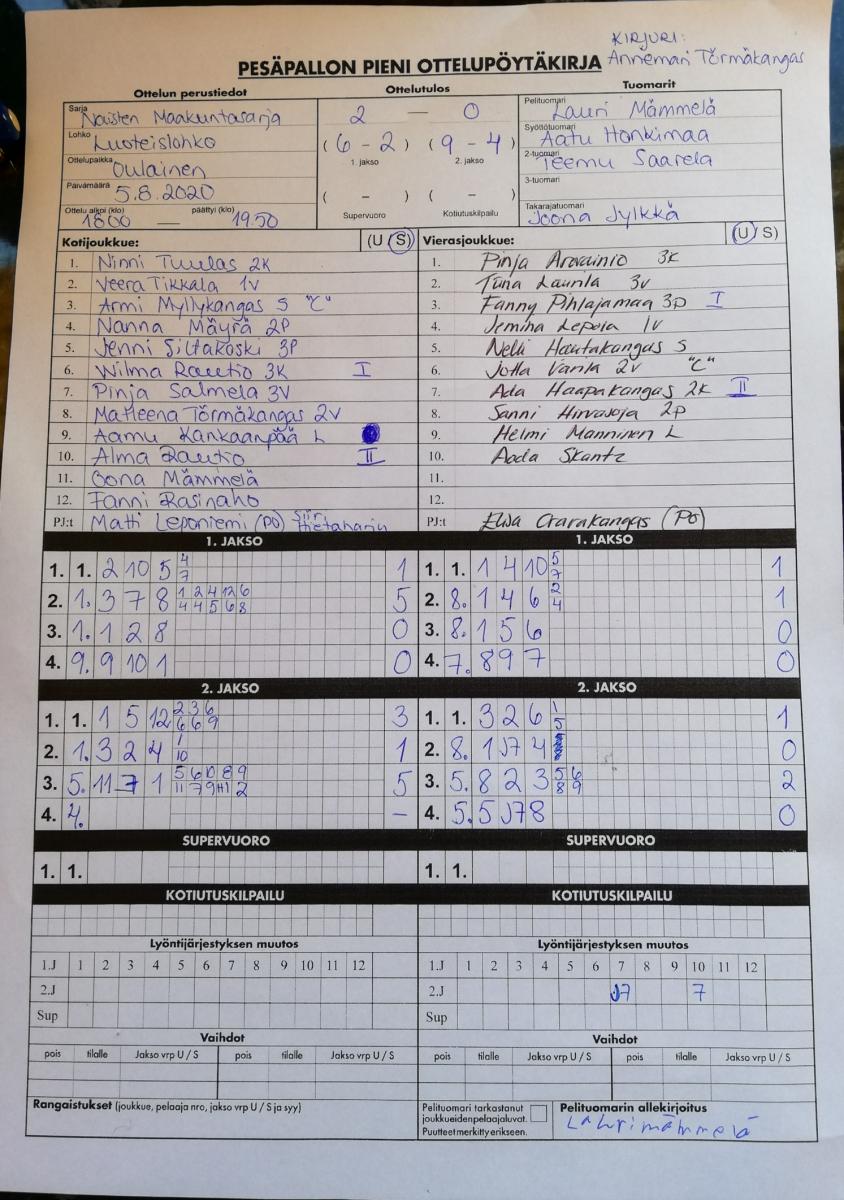 KIRJURI:
Annemari Törmäkangas
PESÄPALLON PIENI OTTELUPÖYTÄKIRJA
Ottelun perustiedot Ottelutulos Tuomarit
Sarja Naisten Maakuntasarja 2 — 0 Pelituomari Lauri Mämmelä
Lohko Luoteislohko (6 - 2) (9 - 4) Syöttötuomari Aatu Honkimaa
1. jakso 2. jakso
Ottelupaikka Oulainen 2-tuomari Teemu Saarela
Päivämäärä 5.8.2020 ( - ) ( - ) 3-tuomari
Ottelu alkoi (klo) 1800 — päättyi (klo) 1950 Supervuoro Kotiutuskilpailu Takarajatuomari Joona Jylkkä
Kotijoukkue: (U S) Vierasjoukkue: (U S)
1. Ninni Tuulas 2K 1. Pinja Arovainio 3K
2. Veera Tikkala 1V 2. Tiina Laurila 3V
3. Armi Myllykangas S "C" 3. Fanny Pihlajamaa 3P I
4. Nanna Mäyrä 2P 4. Jemina Lepola 1V
5. Jenni Siltakoski 3P 5. Nelli Hautakangas S
6. Wilma Rautio 3K I 6. Jotta Vanla 2V "C"
7. Pinja Salmela 3V 7. Ada Haapakangas 2K II
8. Matleena Törmäkangas 2V 8. Sanni Hirvasoja 2p
9. Aamu Kankaanpää L 9. Helmi Manninen L
10. Alma Rautio II 10. Aada Skantz
11. Oona Mämmelä 11.
12. Fanni Rasinaho 12.
PJ:t Matti Leponiemi (PO) Siiri Hietaharju PJ:t (PO)
1. JAKSO 1. JAKSO
1. 1. 2 10 5 4 7 1 1. 1. 1 4 10 5 7 1
2. 1. 3 7 8 1 2 4 12 6 4 4 5 6 8 5 2. 8. 1 4 6 2 4 1
3. 1. 1 2 8 0 3. 8. 1 5 6 0
4. 9. 9 10 1 0 4. 7. 8 9 7 0
2. JAKSO 2. JAKSO
1. 1. 1 5 12 2 3 6 6 6 9 3 1. 1. 3 2 6 1 5 1
2. 1. 3 2 4 1 10 1 2. 8. 1 J7 4 0
3. 5. 11 7 1 5 6 10 8 9 11 7 9 11 2 5 3. 5. 8 2 3 5 6 8 9 2
4. 4. – 4. 5. 5 J7 8 0
SUPERVUORO SUPERVUORO
1. 1. 1. 1.
KOTIUTUSKILPAILU KOTIUTUSKILPAILU
Lyöntijärjestyksen muutos Lyöntijärjestyksen muutos
1.J 1 2 3 4 5 6 7 8 9 10 11 12 1.J 1 2 3 4 5 6 7 8 9 10 11 12
2.J 2.J J7 7
Sup Sup
Vaihdot Vaihdot
pois tilalle Jakso vrp U / S pois tilalle Jakso vrp U / S pois tilalle Jakso vrp U / S pois tilalle Jakso vrp U / S
Rangaistukset (joukkue, pelaaja nro, jakso vrp U / S ja syy) Pelituomari tarkastanut Pelituomarin allekirjoitus
joukkueiden pelaajaluvat. Lauri mämmelä
Puutteet merkitty erikseen.